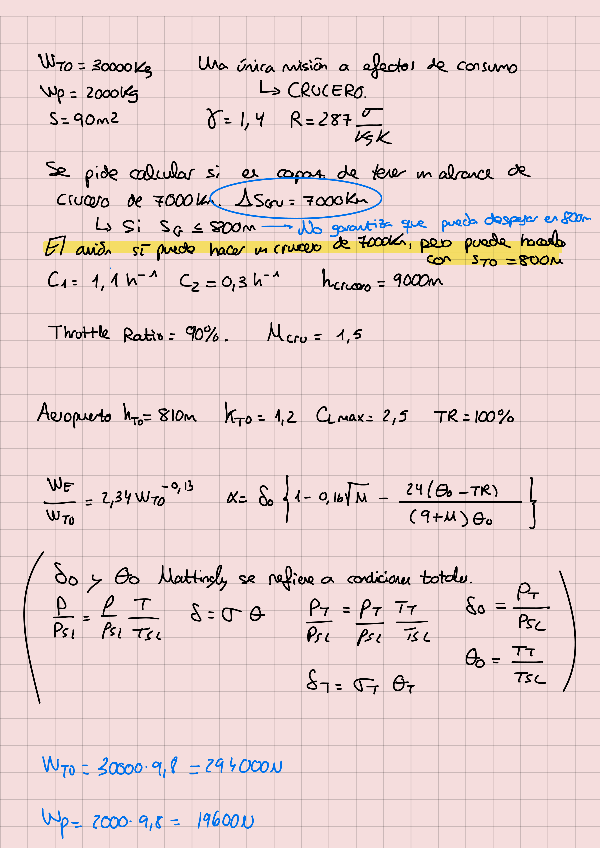 W_TO = 30000kg   Una única misión a efectos de consumo
W_P = 2000kg   ↳ CRUCERO.
S = 90m2   γ = 1,4   R = 287 J/kgK
Se pide calcular si es capaz de tener un alcance de
crucero de 7000km. ΔS_cru = 7000km
↳ Si S_G ≤ 800m → No garantiza que pueda despegar en 800m
El avión sí puede hacer un crucero de 7000km, pero puede hacerlo
con S_TO = 800m
C1 = 1,1 h⁻¹   C2 = 0,3 h⁻¹   h_crucero = 9000m
Throttle Ratio = 90%.   M_cru = 1,5
Aeropuerto h_TO = 810m   K_TO = 1,2   CL max = 2,5   TR = 100%
W_E/W_TO = 2,34 W_TO^-0,13   α = δ0 { 1 - 0,16√M - 24(θ0 - TR)/((9+M)θ0) }
δ0 y θ0 Mattingly se refiere a condiciones totales.
P/P_SL = ρ/ρ_SL T/T_SL   δ = σ θ   P_T/P_SL = ρ_T/ρ_SL T_T/T_SL   δ0 = P_T/P_SL
δ_T = σ_T θ_T   θ0 = T_T/T_SL
W_TO = 30000·9,8 = 294000N
W_P = 2000·9,8 = 19600N